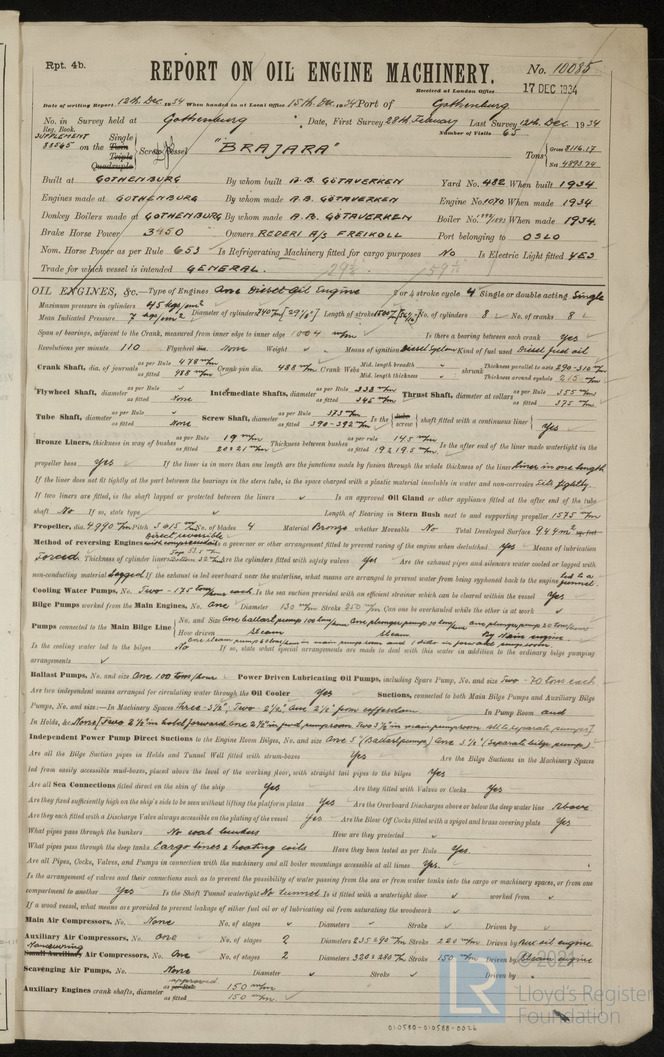 Rpt. 4b.
REPORT ON OIL ENGINE MACHINERY.
No. 10085
Received at London Office 17 DEC 1934
Date of writing Report 12th. Dec. 1934 When handed in at Local Office 15th. Dec. 1934 Port of Gothenburg
No. in Survey held at Gothenburg Date, First Survey 28th February Last Survey 12th. Dec. 1934
Reg. Book. Number of Visits 65
SUPPLEMENT Single
38565 on the Twin Triple Quadruple Screw Vessel "BRAJARA" Tons Gross 8116.17 Net 4893.74
Built at GOTHENBURG By whom built A.B. GÖTAVERKEN Yard No. 482 When built 1934
Engines made at GOTHENBURG By whom made A.B. GÖTAVERKEN Engine No. 1070 When made 1934
Donkey Boilers made at GOTHENBURG By whom made A.B. GÖTAVERKEN Boiler No. When made 1934
Brake Horse Power 3450 Owners REDERI A/S FREIKOLL Port belonging to OSLO
Nom. Horse Power as per Rule 653 Is Refrigerating Machinery fitted for cargo purposes No Is Electric Light fitted YES
Trade for which vessel is intended GENERAL.
OIL ENGINES, &c. Type of Engines One Diesel Oil Engine 2 or 4 stroke cycle 4 Single or double acting Single
Maximum pressure in cylinders 45 kgs/cm² Diameter of cylinders 740 m/m Length of stroke 1500 m/m No. of cylinders 8 No. of cranks 8
Mean Indicated Pressure 7 kgs/cm²
Span of bearings, adjacent to the Crank, measured from inner edge to inner edge 1004 m/m Is there a bearing between each crank Yes
Revolutions per minute 110 Flywheel dia. None Weight Means of ignition Kind of fuel used Diesel fuel oil
Crank Shaft, dia. of journals as per Rule 478 m/m as fitted 488 m/m Crank pin dia. 488 m/m Crank Webs Mid. length breadth Mid. length thickness shrunk Thickness parallel to axis 290-310 m/m Thickness around eyehole 215 m/m
Flywheel Shaft, diameter as per Rule as fitted None Intermediate Shafts, diameter as per Rule 338 m/m as fitted 345 m/m Thrust Shaft, diameter at collars as per Rule 355 m/m as fitted 375 m/m
Tube Shaft, diameter as per Rule as fitted None Screw Shaft, diameter as per Rule 373 m/m as fitted 390-392 m/m Is the tube screw shaft fitted with a continuous liner Yes
Bronze Liners, thickness in way of bushes as per Rule 19 m/m as fitted 20 & 21 m/m Thickness between bushes as per rule 14.5 m/m as fitted 19 & 19.5 m/m Is the after end of the liner made watertight in the
propeller boss Yes If the liner is in more than one length are the junctions made by fusion through the whole thickness of the liner Liner in one length
If the liner does not fit tightly at the part between the bearings in the stern tube, is the space charged with a plastic material insoluble in water and non-corrosive Fits tightly.
If two liners are fitted, is the shaft lapped or protected between the liners Is an approved Oil Gland or other appliance fitted at the after end of the tube
shaft No If so, state type Length of Bearing in Stern Bush next to and supporting propeller 1575 m/m
Propeller, dia. 4990 m/m Pitch 3615 m/m No. of blades 4 Material Bronze whether Moveable No Total Developed Surface 9.44 m²
Method of reversing Engines Direct reversible Is a governor or other arrangement fitted to prevent racing of the engine when declutched Yes Means of lubrication
Forced. Thickness of cylinder liners Are the cylinders fitted with safety valves Yes Are the exhaust pipes and silencers water cooled or lagged with
non-conducting material Lagged If the exhaust is led overboard near the waterline, what means are arranged to prevent water from being syphoned back to the engine Led to a funnel.
Cooling Water Pumps, No. Two - 175 tons/hour each. Is the sea suction provided with an efficient strainer which can be cleared within the vessel Yes
Bilge Pumps worked from the Main Engines, No. One Diameter 130 m/m Stroke 250 m/m Can one be overhauled while the other is at work
Pumps connected to the Main Bilge Line No. and Size One ballast pump 100 tons/hour One plunger pump 30 tons/hour One plunger pump 20 tons/hour
How driven Steam Steam By Main engine
Is the cooling water led to the bilges No If so, state what special arrangements are made to deal with this water in addition to the ordinary bilge pumping
arrangements
Ballast Pumps, No. and size One 100 tons/hour Power Driven Lubricating Oil Pumps, including Spare Pump, No. and size Two - 70 tons each
Are two independent means arranged for circulating water through the Oil Cooler Yes Suctions, connected to both Main Bilge Pumps and Auxiliary Bilge
Pumps, No. and size:—In Machinery Spaces Three - 3½", Two - 2½", One 2½" from cofferdam In Pump Room and
In Holds, &c. None [Two 2½" in hold forward, One 2½" in fwd. pumproom Two 3½" in main pumproom all to separate pumps]
Independent Power Pump Direct Suctions to the Engine Room Bilges, No. and size One 5" (Ballast pump) One 3½" (Separate bilge pump)
Are all the Bilge Suction pipes in Holds and Tunnel Well fitted with strum-boxes Yes Are the Bilge Suctions in the Machinery Spaces
led from easily accessible mud-boxes, placed above the level of the working floor, with straight tail pipes to the bilges Yes
Are all Sea Connections fitted direct on the skin of the ship Yes Are they fitted with Valves or Cocks Yes
Are they fixed sufficiently high on the ship's side to be seen without lifting the platform plates Yes Are the Overboard Discharges above or below the deep water line Above
Are they each fitted with a Discharge Valve always accessible on the plating of the vessel Yes Are the Blow Off Cocks fitted with a spigot and brass covering plate Yes
What pipes pass through the bunkers No coal bunkers How are they protected
What pipes pass through the deep tanks Cargo lines & heating coils Have they been tested as per Rule Yes.
Are all Pipes, Cocks, Valves, and Pumps in connection with the machinery and all boiler mountings accessible at all times Yes.
Is the arrangement of valves and their connections such as to prevent the possibility of water passing from the sea or from water tanks into the cargo or machinery spaces, or from one
compartment to another Yes Is the Shaft Tunnel watertight No tunnel Is it fitted with a watertight door worked from
If a wood vessel, what means are provided to prevent leakage of either fuel oil or of lubricating oil from saturating the woodwork
Main Air Compressors, No. None No. of stages Diameters Stroke Driven by
Auxiliary Air Compressors, No. One No. of stages 2 Diameters 235 & 90 m/m Stroke 220 m/m Driven by Aux oil engine
Manoeuvring
Small Auxiliary Air Compressors, No. One No. of stages 2 Diameters 320 & 280 m/m Stroke 150 m/m Driven by Steam engine
Scavenging Air Pumps, No. None Diameter Stroke Driven by
Auxiliary Engines crank shafts, diameter as per Rule approved 150 m/m as fitted 150 m/m
© 2021
LR Lloyd's Register Foundation
010580-010588-0026